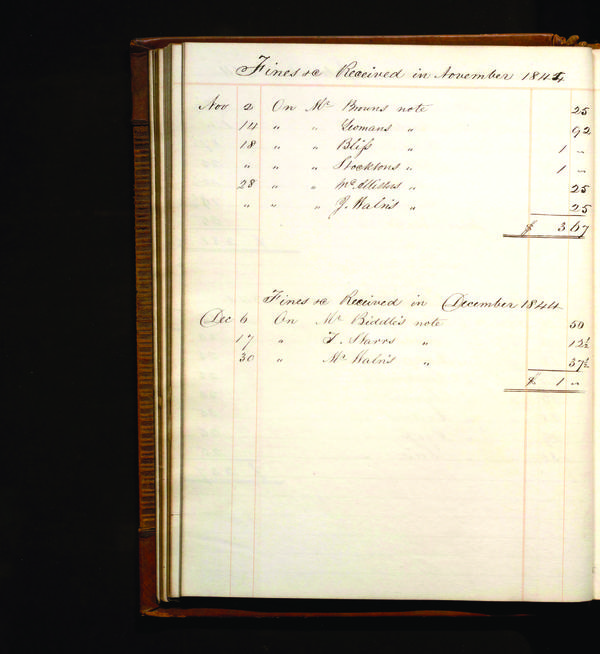 Fines &c Received in November 1844
Nov 2 On Mr Browns note 25
14 " " Yeomans " 92
18 " " Bliss " 1 "
" " " Stocktons " 1 "
28 " " " 25
" " " J. Waln's " 25
$ 3 67
Fines &c Received in December 1844
Dec 6 On Mr Biddle's note 50
17 " T. Starrs " 12½
30 " Mr Waln's " 37½
$ 1 "